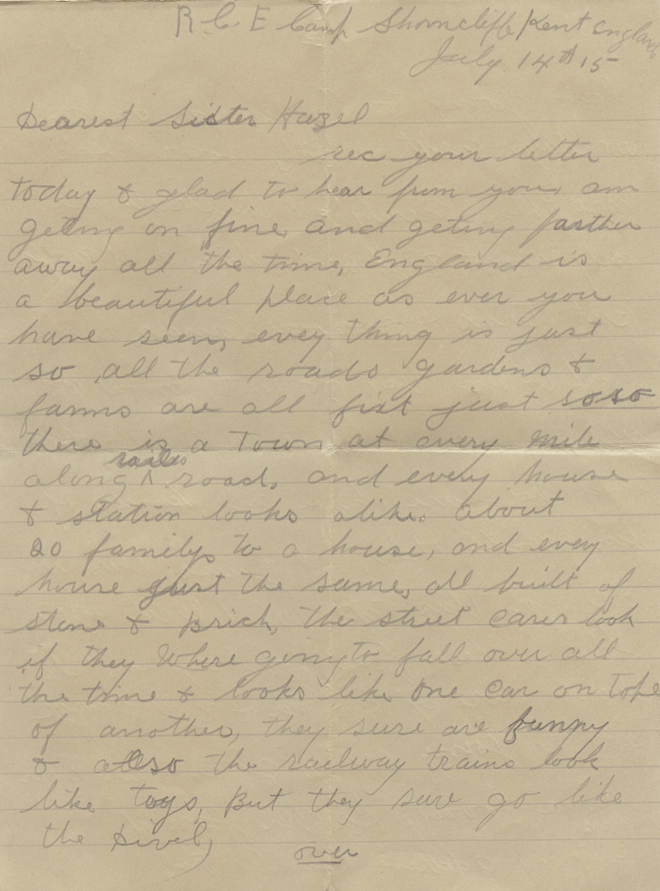 R C E Camp Shorncliffe, Kent England
July 14th 15
Dearest Sister Hazel
rec your letter
today & glad to hear from you, am
geting on fine and geting farther
away all the time, England is
a beautiful place as ever you
have seen, evey thing is just
so, all the roads gardens &
farms are all fixt just so so
there is a Town at every mile
along rail road, and every house
& station looks alike. about
20 familys to a house, and evey
house just the same, all built of
stone & brick, the street cares look
if they where going to fall over all
the time & looks like one car on tope
of another, they sure are funny
& allso the railway trains look
like toys, But they sure go like
the divel,
over